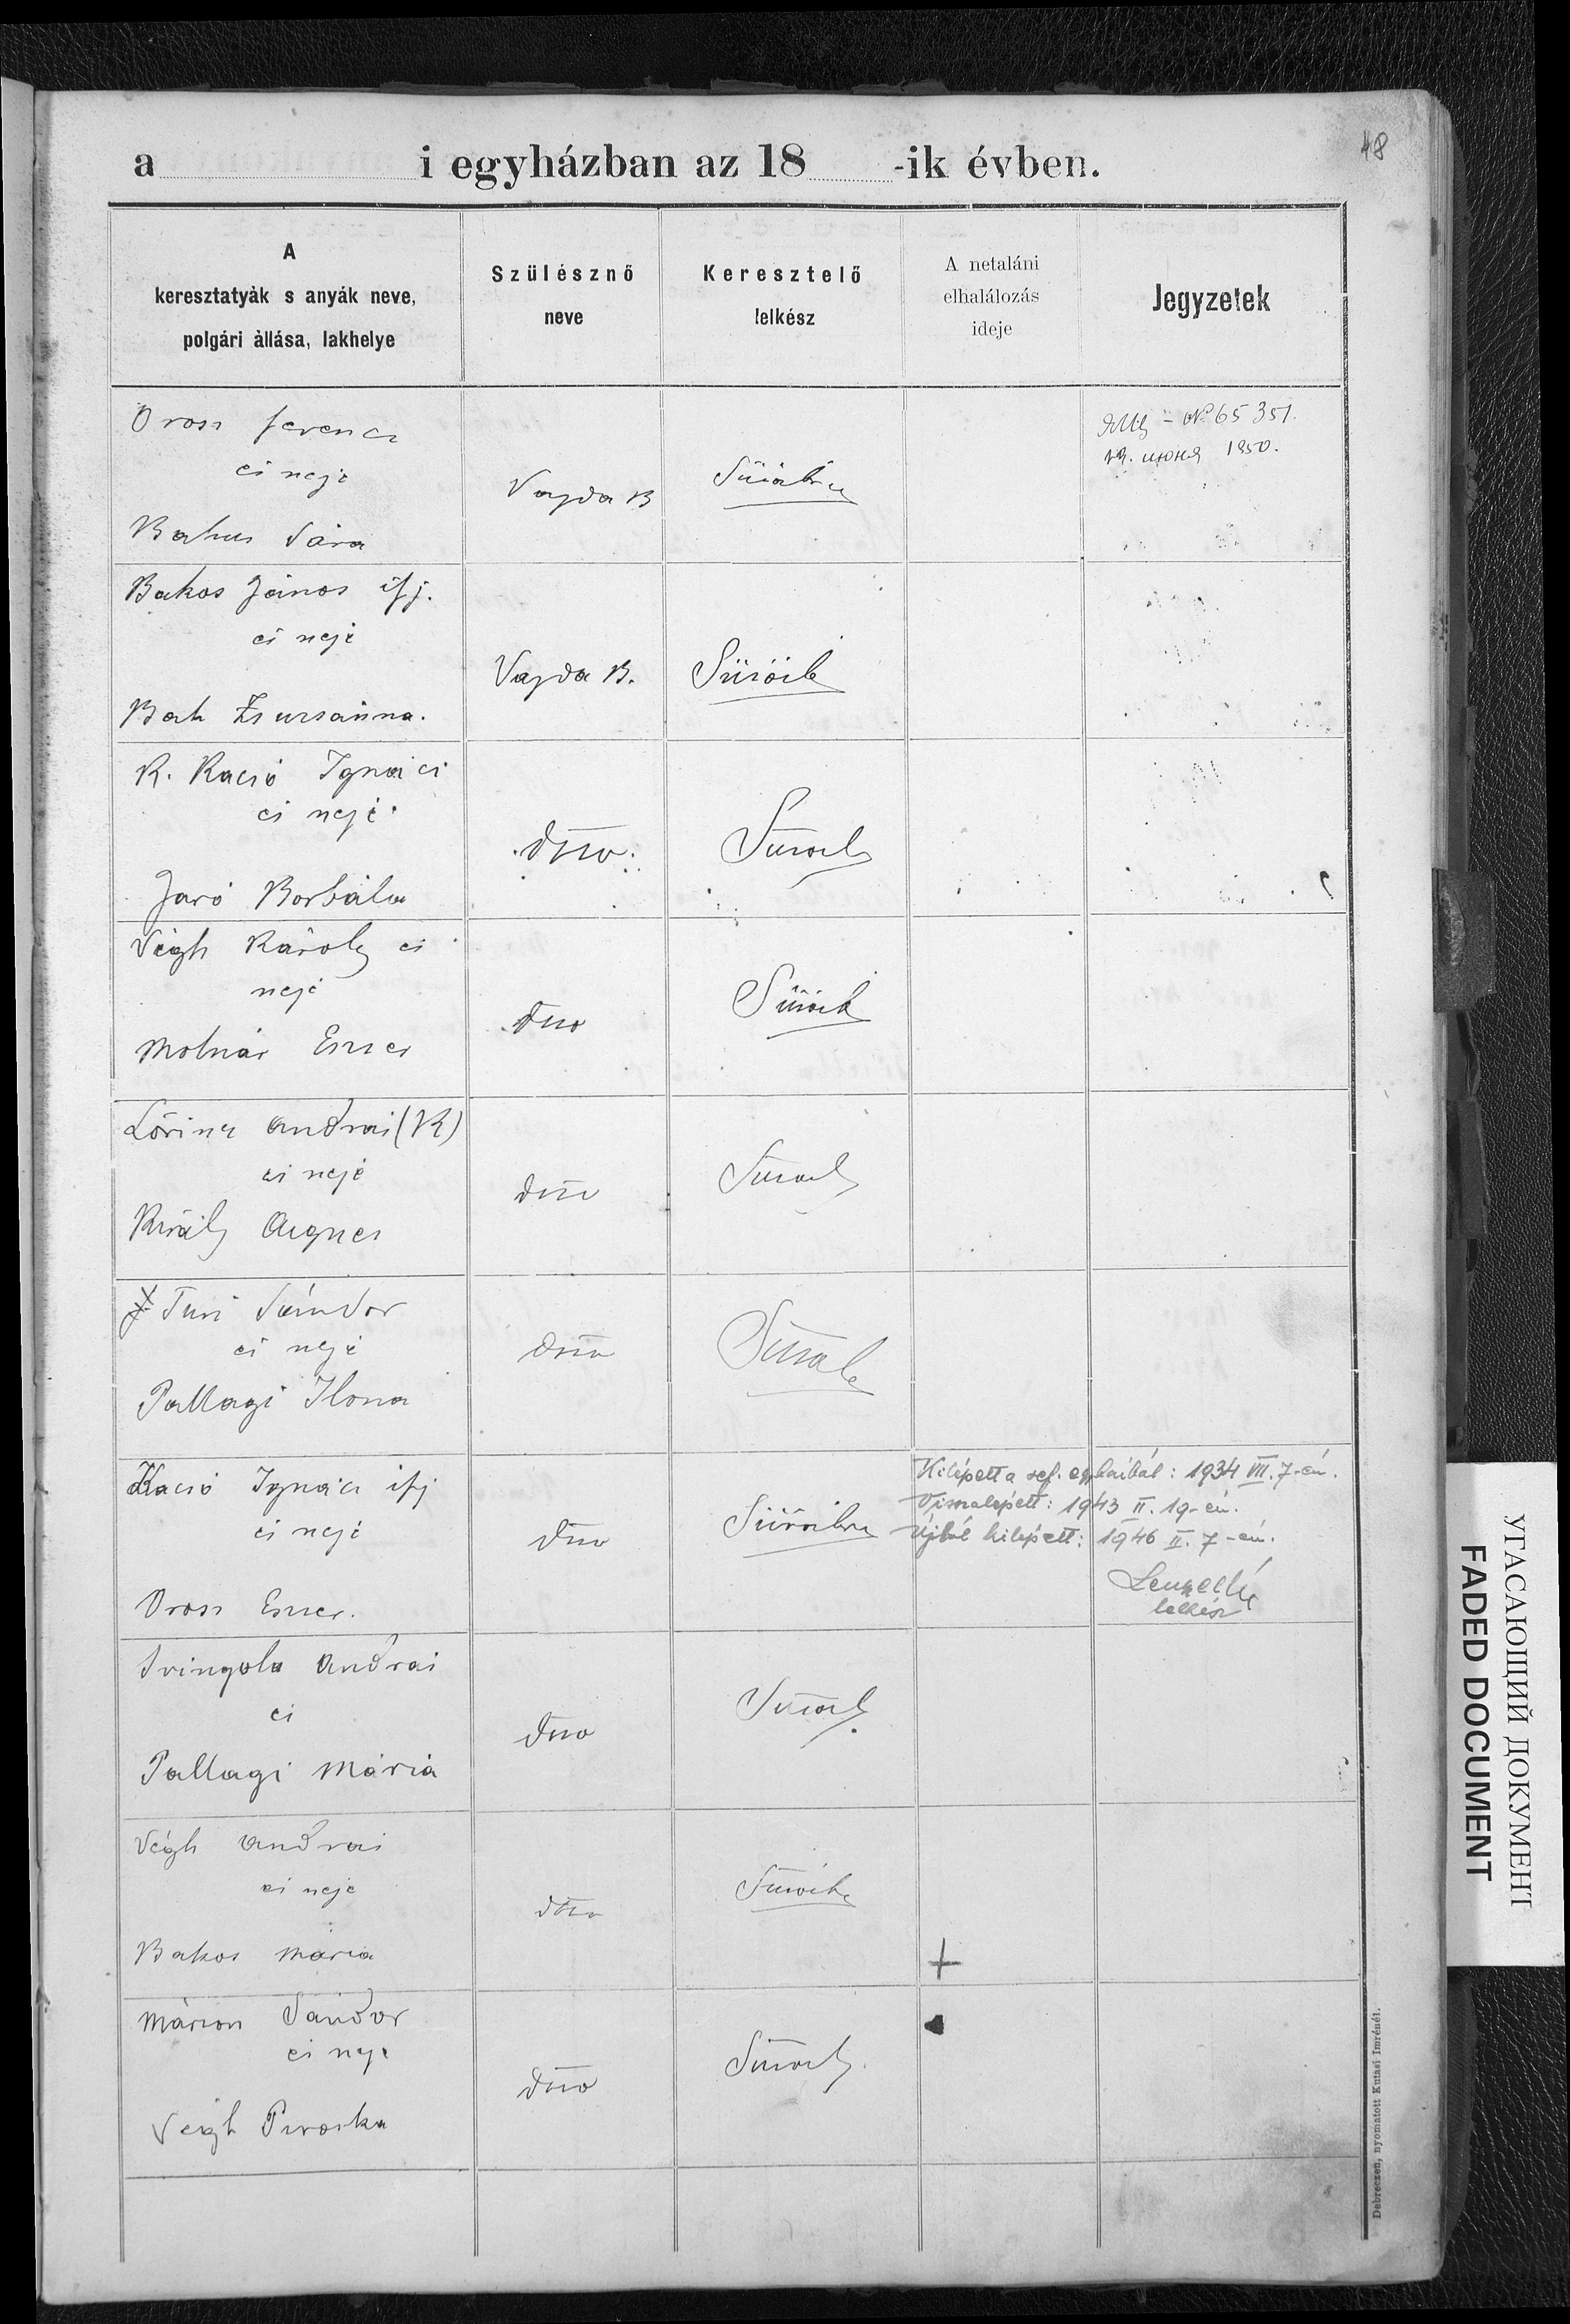 48
a i egyházban az 18 -ik évben.
A
keresztatyák s anyák neve,
polgári állása, lakhelye
Szülésznő
neve
Keresztelő
lelkész
A netaláni
elhalálozás
ideje
Jegyzetek
Orosz Ferencz
és neje
Sára
Vajda B
№ 65351.
июня 1950.
Bakos János ifj.
és neje
Zsuzsánna.
Vajda B.
K. Kacsó Ignácz
és neje
Jaró Borbála
dtto
Végh Károly és
neje
Molnár Eszter
dtto
Lőrincz András (K)
és neje
Király Ágnes
dtto
Turi Sándor
és neje
Pallagi Ilona
dtto
Kacsó Ignácz ifj
és neje
Orosz Eszter.
dtto
Kilépett a ref. egyházból: 1934 VIII. 7-én.
Visszalépett: 1943 II. 19-én.
Újból kilépett: 1946 II. 7-én.
lelkész
Svingola András
és
Pallagi Mária
dtto
Végh András
és neje
Bakos Mária
dtto
+
Márton Sándor
és neje
Végh Piroska
dtto
Debreczen, nyomatott Kutasi Imrénél.
УГАСАЮЩИЙ ДОКУМЕНТ
FADED DOCUMENT